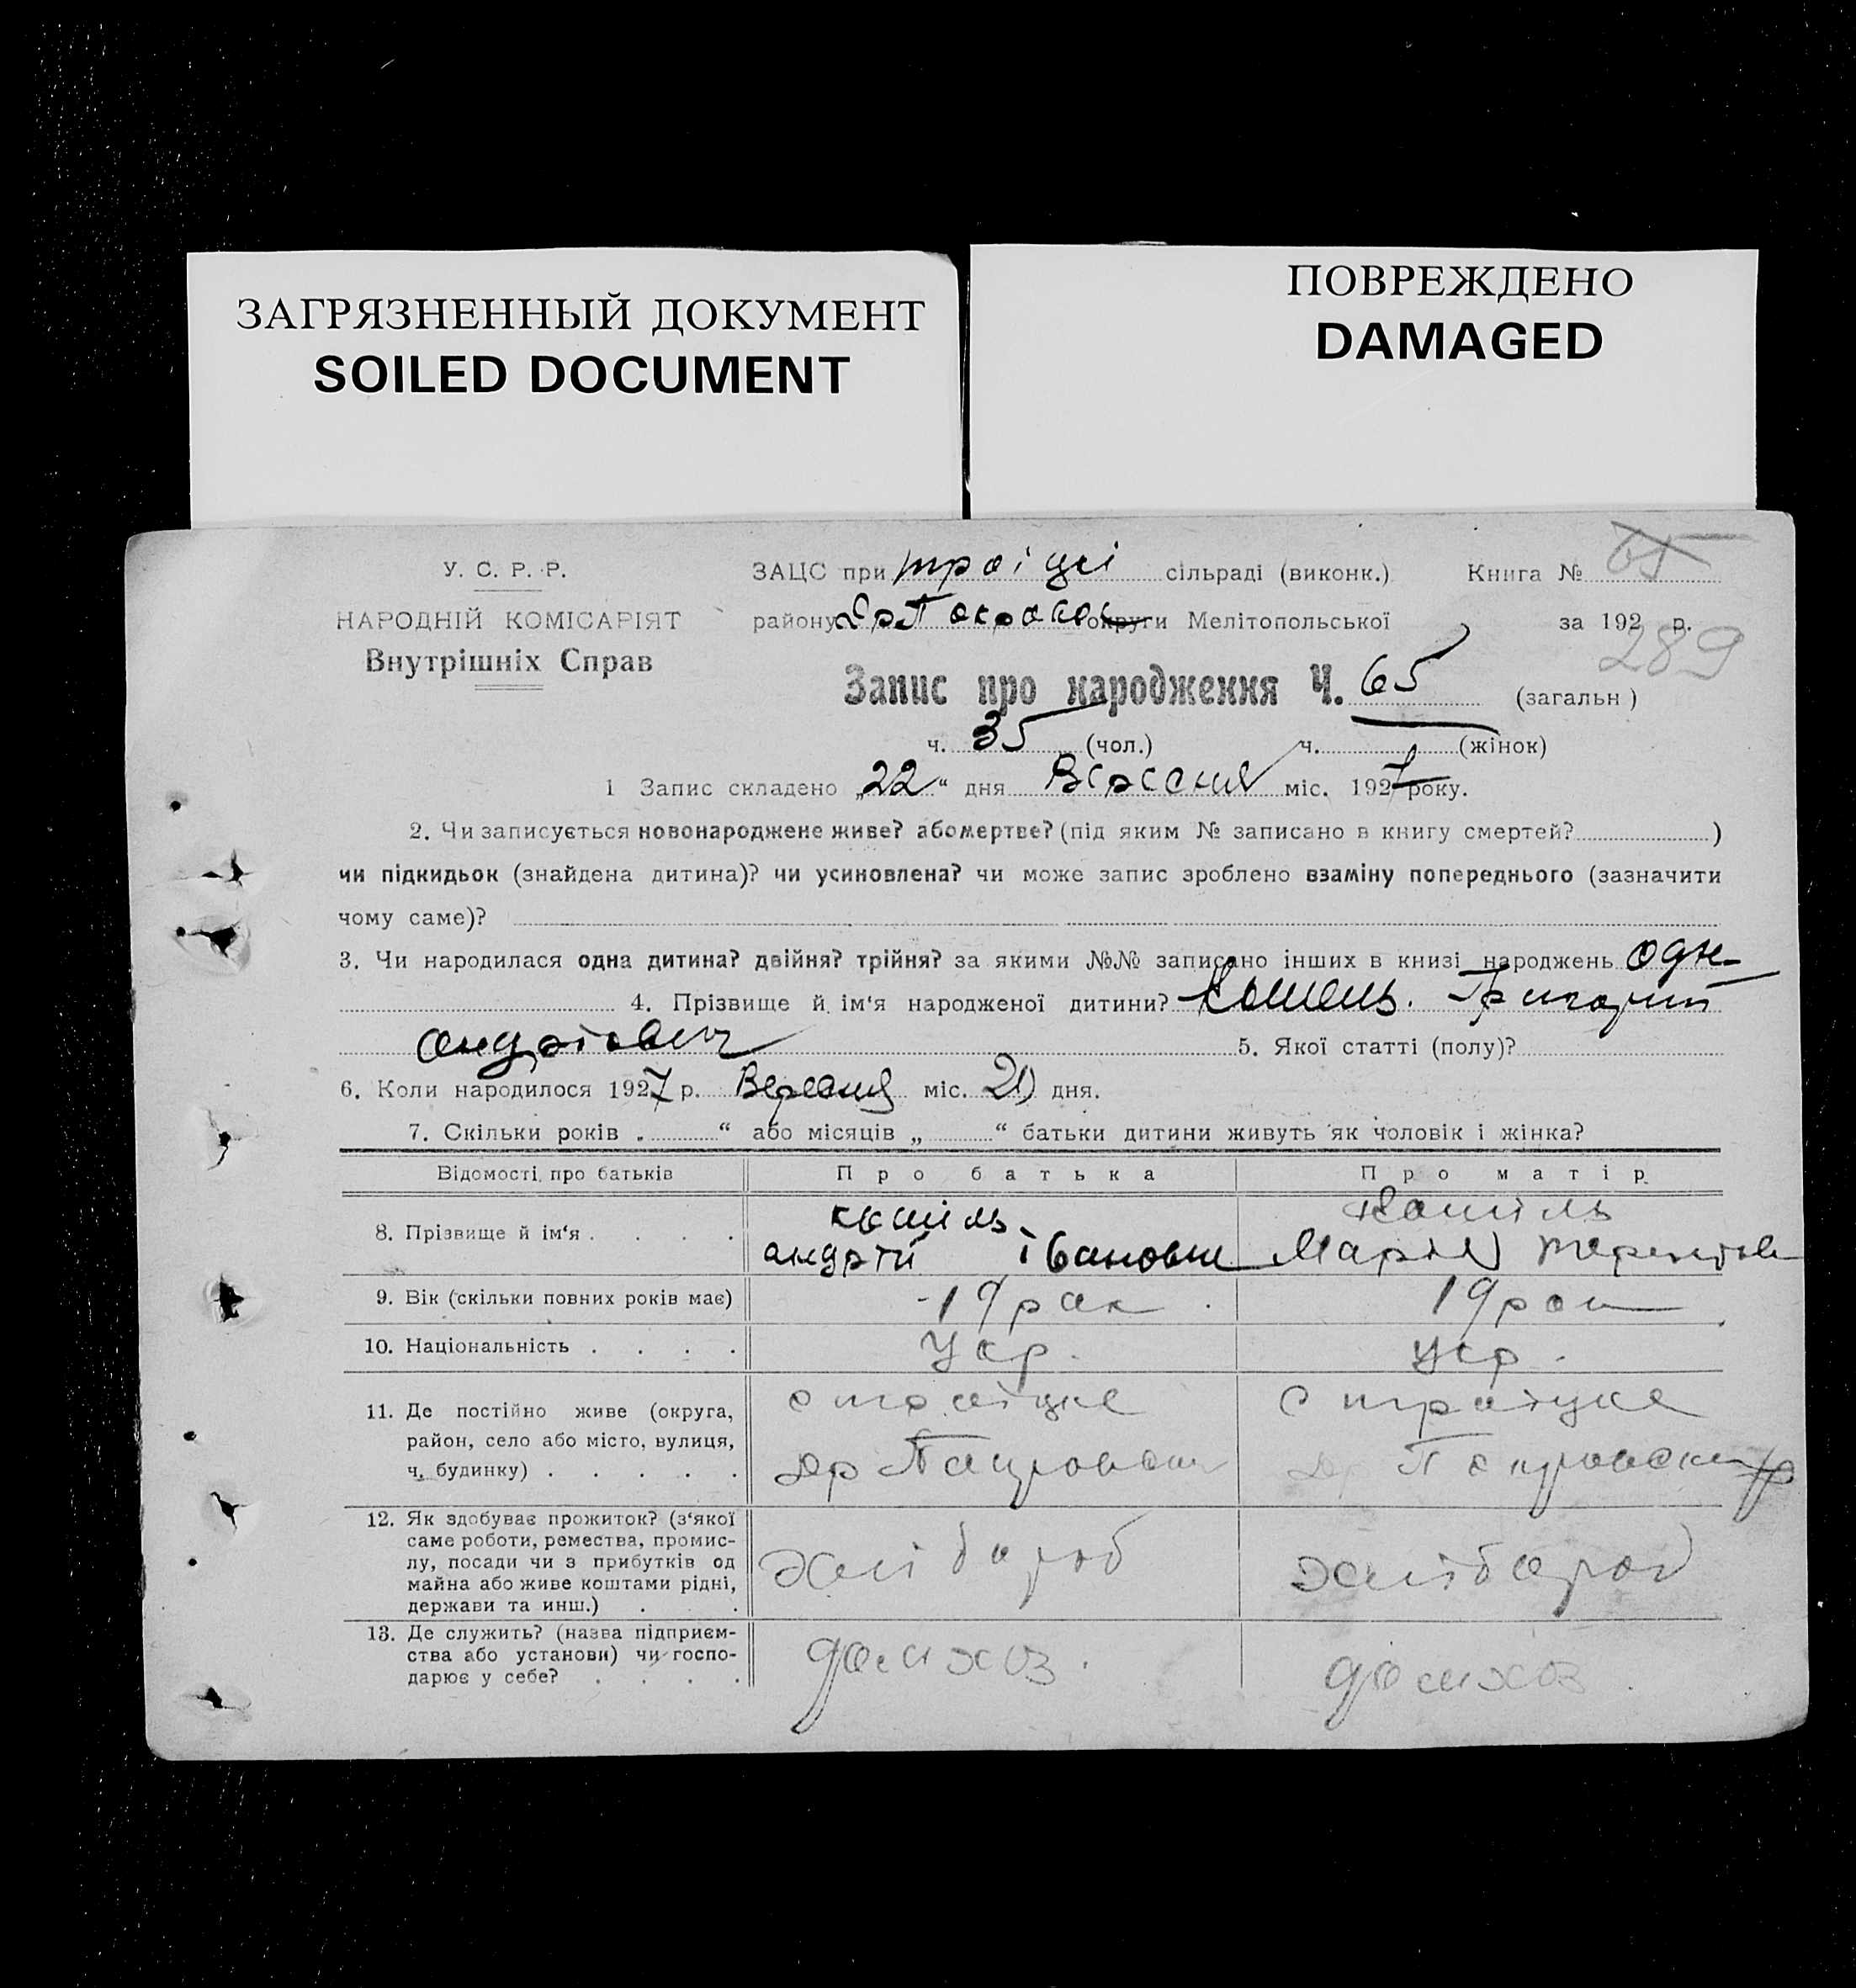 ЗАГРЯЗНЕННЫЙ ДОКУМЕНТ
SOILED DOCUMENT
ПОВРЕЖДЕНО
DAMAGED
У. С. Р. Р.
НАРОДНІЙ КОМІСАРІЯТ
Внутрішніх Справ
ЗАЦС при троіцкі сільраді (виконк.) Книга № 65
району округи Мелітопольської за 192 р.
289
Запис про народження Ч. 65 (загальн )
ч. 35 (чол.) ч. (жінок)
1 Запис складено „22“ дня Вересня міс. 1927 року.
2. Чи записується новонароджене живе? або мертве? (під яким № записано в книгу смертей? )
чи підкидьок (знайдена дитина)? чи усиновлена? чи може запис зроблено взаміну попереднього (зазначити
чому саме)?
3. Чи народилася одна дитина? двійня? трійня? за якими №№ записано інших в книзі народжень одн
4. Прізвище й ім‘я народженої дитини? Кошель. Григорий
андрїович 5. Якої статті (полу)?
6. Коли народилося 1927 р. Вересня міс. 20 дня.
7. Скільки років „ “ або місяців „ “ батьки дитини живуть як чоловік і жінка?
Відомості про батьків Про батька Про матір
8. Прізвище й ім‘я . . . . кошіль Кошіль
андрій іванович Марія
9. Вік (скільки повних років має) 19 рок 19 рок
10. Національність . . . . Укр. укр.
11. Де постійно живе (округа, с троїцке с троїцке
район, село або місто, вулиця,
ч. будинку) . . . . .
12. Як здобуває прожиток? (з‘якої
саме роботи, ремества, промис-
лу, посади чи з прибутків од хлібороб хлібороб
майна або живе коштами рідні,
держави та инш.) . . .
13. Де служить? (назва підприєм-
ства або установи) чи госпо- домхоз. домхоз.
дарює у себе? . . . .